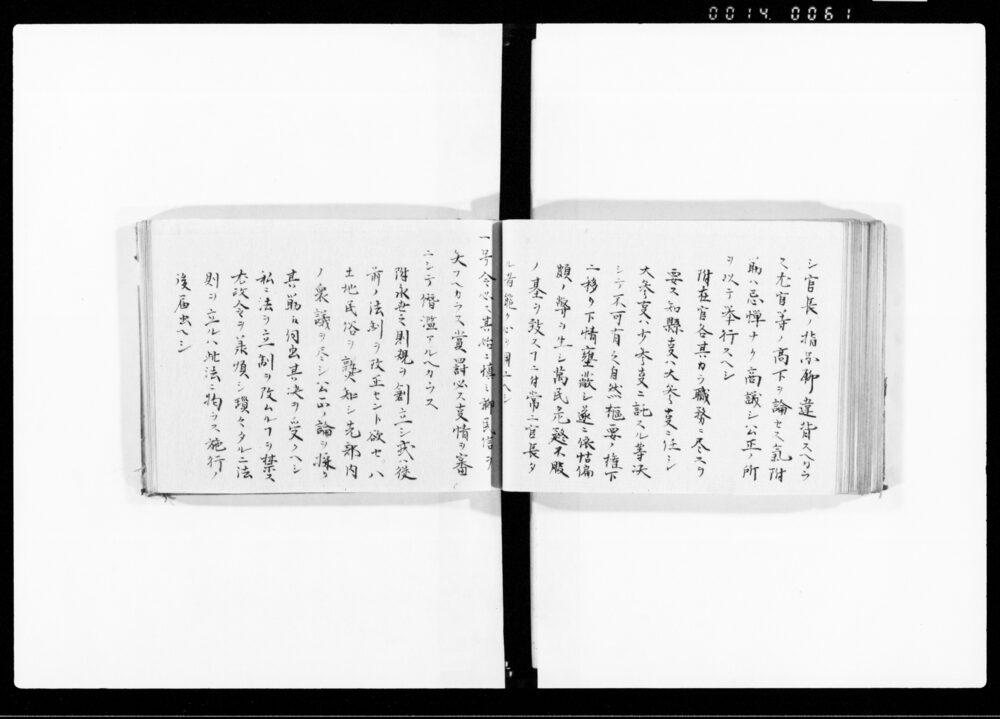 0014 0061
シ官長ノ指示聊違背スヘカラ
ス尤官等ノ高下ヲ論セス氣附
筋ハ忌憚ナク商議シ公正ノ所
ヲ以テ挙行スヘシ
附在官各其力ヲ職務ニ尽スヲ
要ス知縣事ハ大参事ニ任シ
大参事ハ少参事ニ託スル等決
シテ不可有之自然樞要ノ権下
ニ移リ下情壅蔽シ遂ニ依怙偏
頗ノ弊ヲ生シ萬民危殆不服
ノ基ヲ致スヿニ付常ニ官長タ
ル者能々心ヲ用ユヘシ
一号令必其始ニ慎ミ聊民信ヲ
失フヘカラス賞罰必ス事情ヲ審
ニシテ僭濫アルヘカラス
附永世之則規ヲ創立シ或ハ従
前ノ法制ヲ改正セント欲セハ
土地民俗ヲ熟知シ先部内
ノ衆議ヲ尽シ公正ノ論ヲ採リ
其ノ筋ヘ伺出其決ヲ受クヘシ
私ニ法ヲ立制ヲ改ムルヿヲ禁ス
右政令ヲ 順シ瑣々タル二法
則ヲ立ルハ此法ニ拘ラス施行ノ
後届出ヘシ